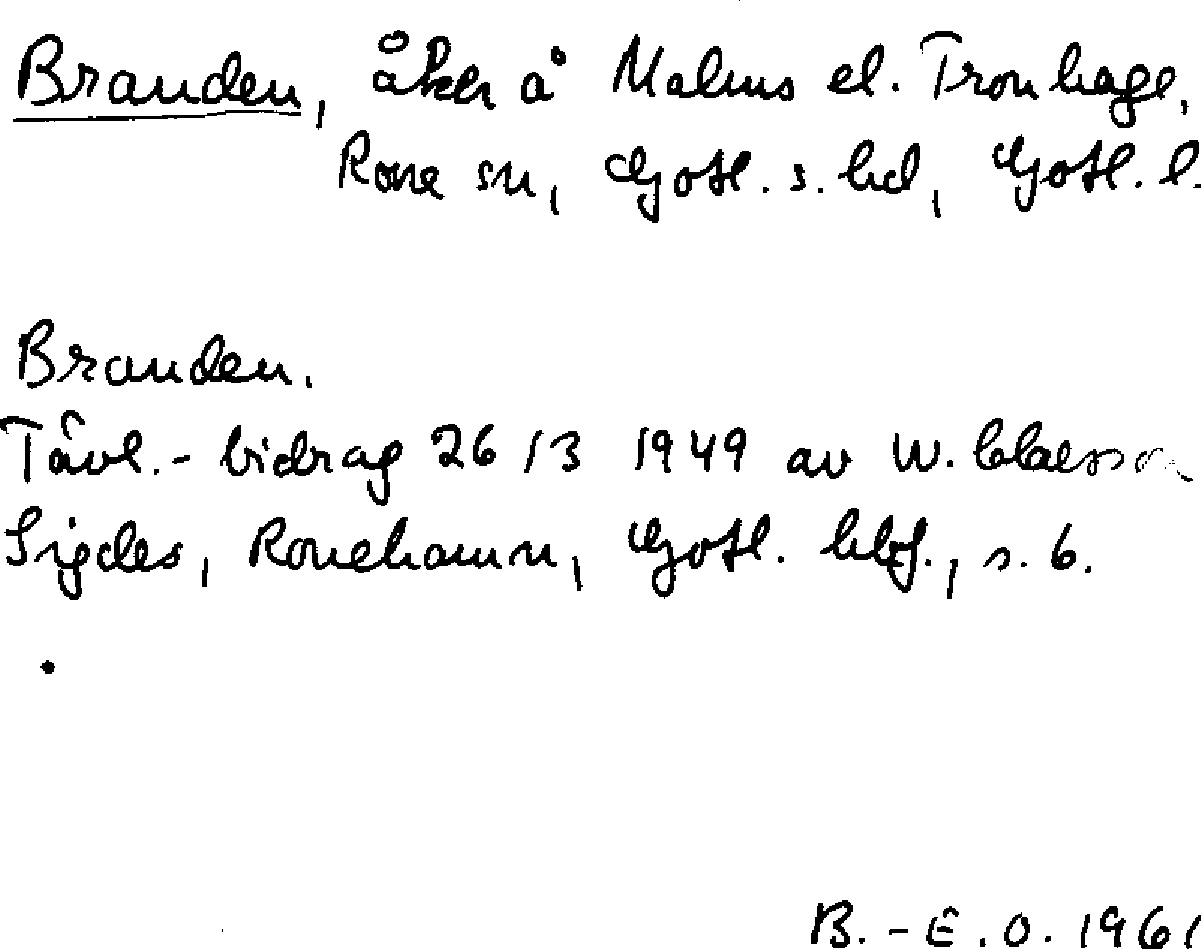 Branden, åker å Malms el. Tronhage,
Rone sn, Gotl. s. hd, Gotl. l.
Branden.
Tävl.- bidrag 26/3 1949 av W. Claesson
Sigdes, Ronehamn, Gotl. hbf., s. 6.
B.-E. O. 1961